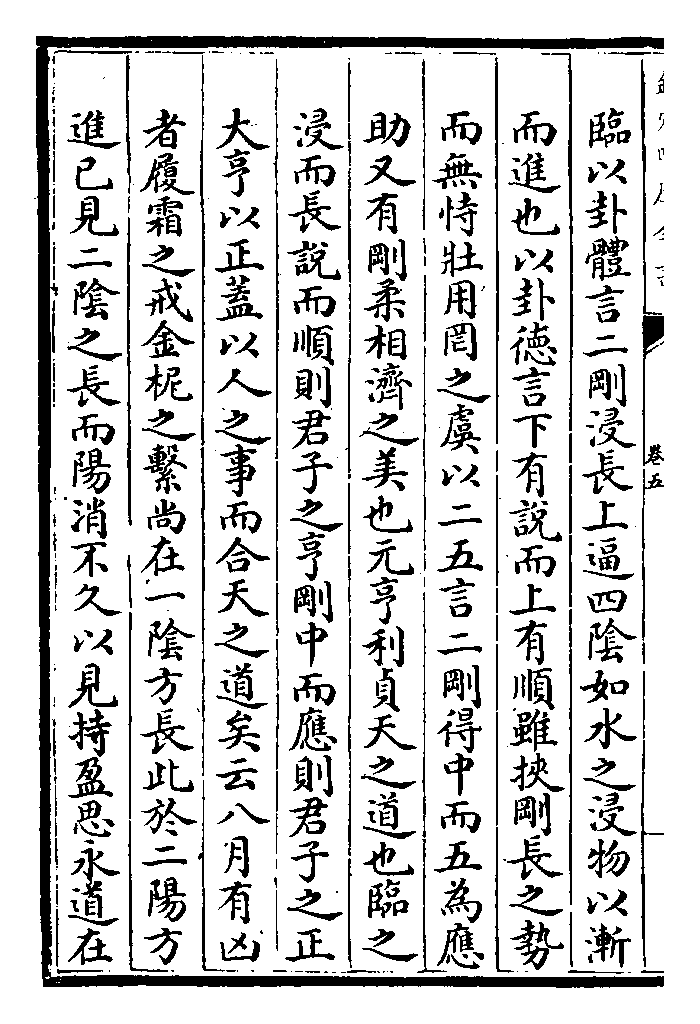 臨以卦體言二剛浸長上逼四陰如水之浸物以漸
而進也以卦德言下有說而上有順雖挾剛長之勢
而無恃壯用罔之虞以二五言二剛得中而五為應
助又有剛柔相濟之美也元亨利貞天之道也臨之
浸而長說而順則君子之亨剛中而應則君子之正
大亨以正蓋以人之事而合天之道矣云八月有凶
者履霜之戒金柅之繫尚在一陰方長此於二陽方
進已見二陰之長而陽消不久以見持盈思永道在
卷五